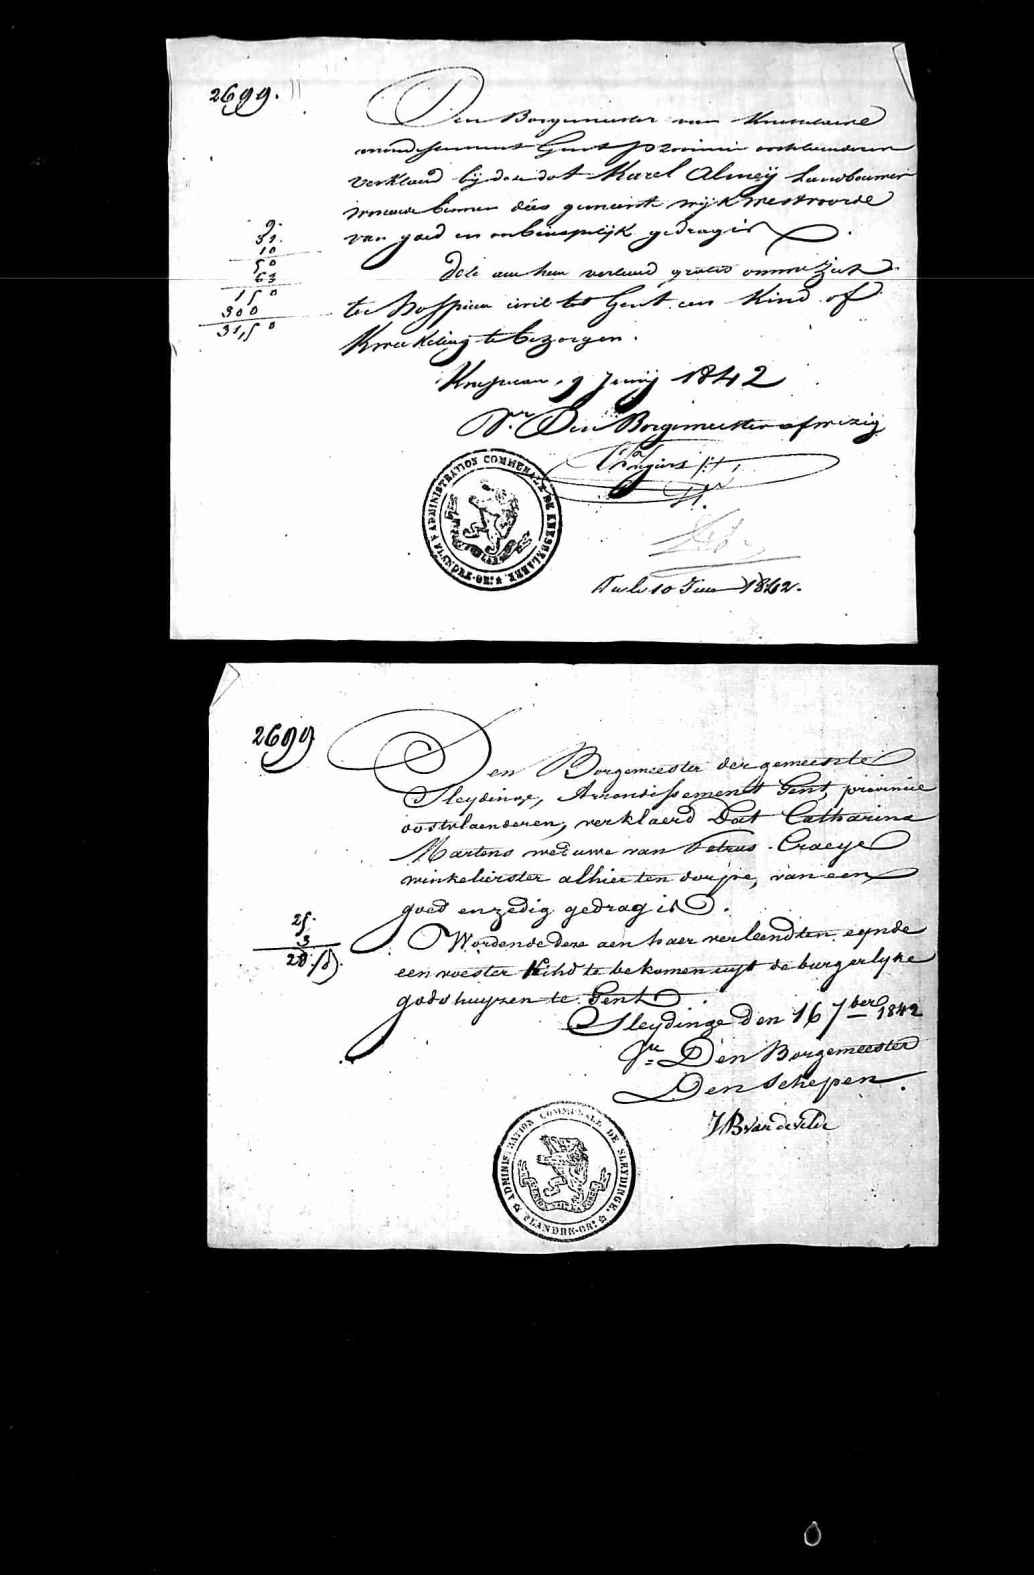 2699.
Den Borgemeester van Knesselaere
arrondissement Gent provincie oostvlaenderen
verklaerd bij deze dat Karel Almeij Landbouwer
binnen dées gemeente wijk westvoorde
van goed en onberispelijk gedrag is.
9.
31.
10
50
63
150
300
31,50
Dele aen hem verleend gratis omme zich
ten hospice civil tot Gent een Kind of
Kweekeling te bezorgen.
9 Junij 1842
Vr. Den Borgemeester afwezig
ADMINISTRATION COMMUNALE DE KNESSELAERE FLANDRE-OR.
10 Juin 1842.
2699
Den Borgemeester der gemeente
Sleydinge, Arrondissement Gent, provincie
oostvlaenderen, verklaerd Dat Catharina
Martens weduwe van Petrus Craeye
winkelierster alhier ten dorpe, van een
goed en zedig gedrag is.
25.
3
28.
Wordende deze aen haer verleend ten eynde
een voester Kind te bekomen uyt de burgerlyke
godshuyzen te Gent.
Sleydinge den 16 7ber 1842
Vr. Den Borgemeester
Den Schepen.
JB Van de Velde
ADMINISTRATION COMMUNALE DE SLEYDINGE. FLANDRE-OR.